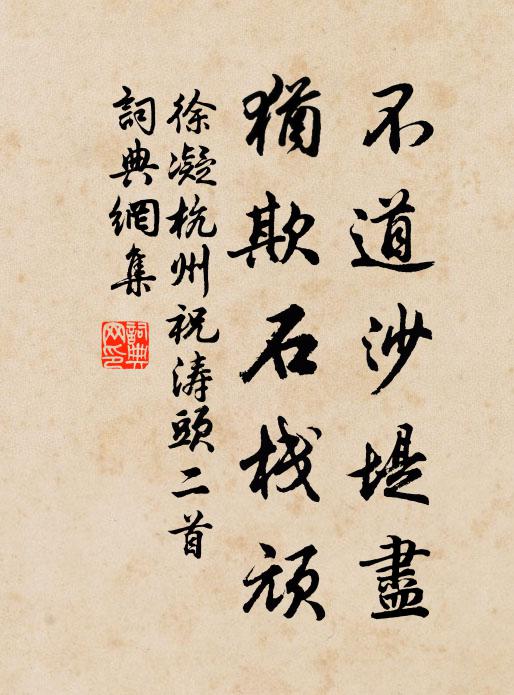 不道沙堤盡
猶欺石栈頑
徐凝杭州祝涛頭二首
詞典網集
詞典網印